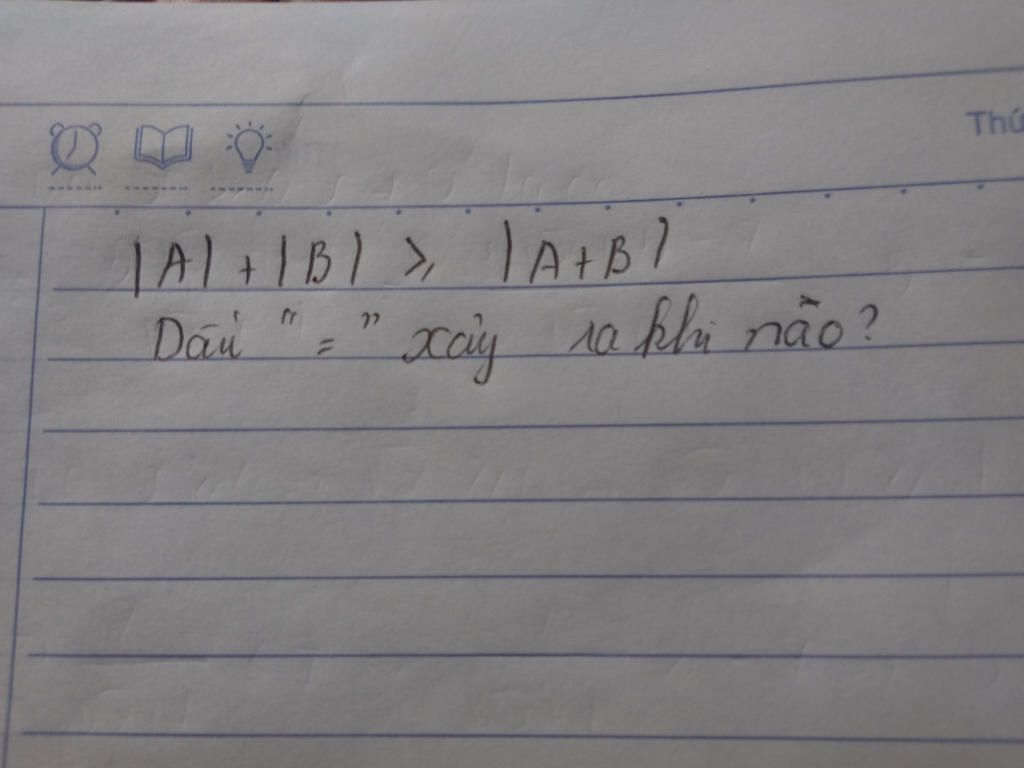 Thứ
|A| + |B| ⩾ |A+B|
Dấu "=" xảy ra khi nào?